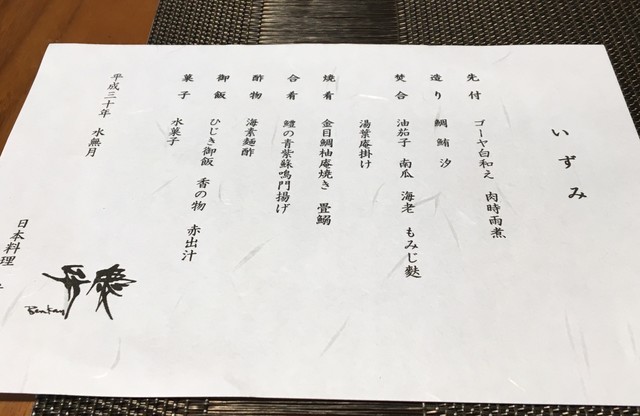 いずみ
先付 ゴーヤ白和え 肉時雨煮
造り 鯛 鮪 汐
焚合 油茄子 南瓜 海老 もみじ麩
湯葉庵掛け
焼肴 金目鯛柚庵焼き 畳鰯
合肴 鱧の青紫蘇鳴門揚げ
酢物 海素麺酢
御飯 ひじき御飯 香の物 赤出汁
菓子 水菓子
平成三十年 水無月
日本料理
Benkay